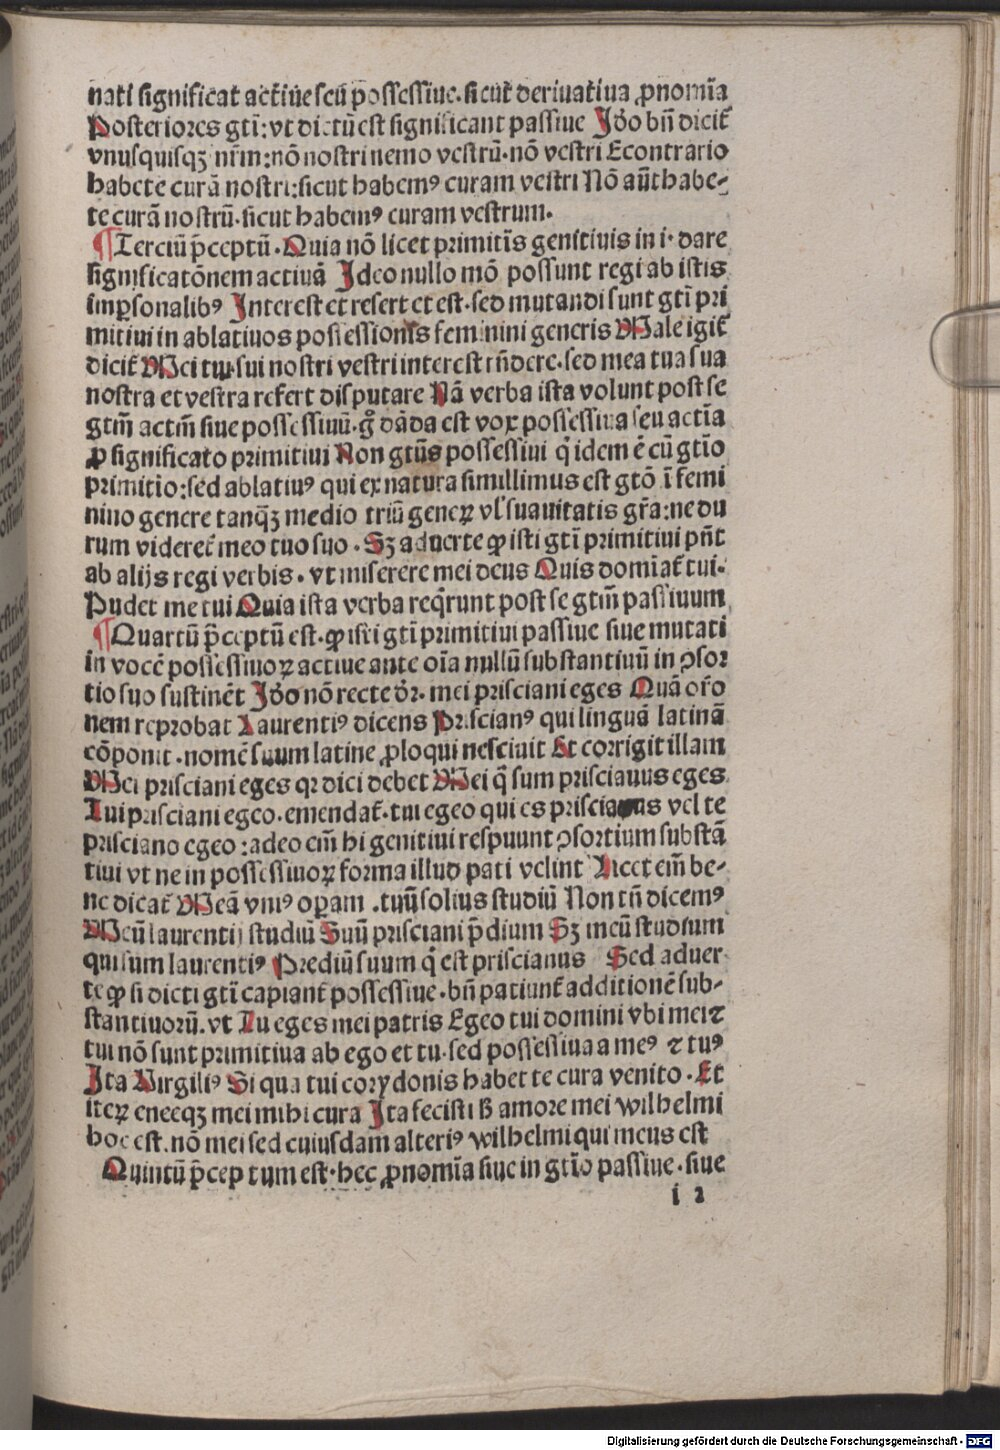 nati significat actiũe seu possessiue. sicut̃ deriuatiua ꝓnomĩa
Posteriores gtĩ: vt dictũ est significant passiue Iđo bñ dicit̃
vnusquisqꝫ nr̃m: nõ nostri nemo vestrũ. nõ vestri Econtrario
habete curã nostri: sicut habemꝰ curam vestri Nõ aũt habe⸗
te curã nostrũ. sicut habemꝰ curam vestrum.
¶ Terciũ p̃ceptũ. Quia nõ licet primitĩs genitiuis in i. dare
significatõnem actiuã Ideo nullo mõ possunt regi ab istis
imꝑsonalibꝰ Interest et refert et est. sed mutandi sunt gtĩ pri
mitiui in ablatiuos possessionĩs feminini generis Male igit̃
dicit̃ Mei tui sui nostri vestri interest rñdere. sed mea tua sua
nostra et vestra refert disputare Nã verba ista volunt post se
gtm̃ actm̃ siue possessiuũ. gͦ dãda est vox possessiua seu actĩa
ꝓ significato primitiui Non gtũs possessiui q̃ idem ẽ cũ gtĩo
primitĩo: sed ablatiuꝰ qui ex natura simillimus est gtõ ĩ femi
nino genere tanqꝫ medio triũ generꝝ vl̃ suauitatis gr̃a: ne du
rum videret̃ meo tuo suo. Sꝫ aduerte ꝙ isti gtĩ primitiui pñt
ab alijs regi verbis. vt miserere mei deus Quis domĩat̃ tui.
Pudet me tui Quia ista verba req̃runt post se gtm̃ passiuum
¶ Quartũ p̃ceptũ est. ꝙ isti gtĩ primitiui passiue siue mutati
in vocẽ possessiuoꝝ actiue ante oĩa nullũ substantiuũ in ꝯsor
tio suo sustinẽt Iđo nõ recte dr̃. mei prisciani eges Quã or̃o
nem reprobat Laurentiꝰ dicens Priscianꝰ qui linguã latinã
cõponit. nomẽ suum latine ꝓloqui nesciuit Et corrigit illam
Mei prisciani eges qꝛ dici debet Mei q̃ sum priscianus eges
Tui prisciani egeo. emendat̃. tui egeo qui es priscianus vel te
prisciano egeo: adeo em̃ hi genitiui respuunt ꝯsortium substã
tiui vt ne in possessiuoꝝ forma illud pati velint Licet em̃ be⸗
ne dicat̃ Meã vniꝰ oꝑam. tuũ solius studiũ Non tñ dicemꝰ
Meũ laurentij studiũ Suũ prisciani p̃dium Sꝫ meũ studium
qui sum laurentiꝰ Prediũ suum q̃ est priscianus Sed aduer
te ꝙ si dicti gtĩ capiant̃ possessiue. bñ patiunt̃ additionẽ sub⸗
stantiuorũ. vt Tu eges mei patris Egeo tui domini vbi mei ⁊
tui nõ sunt primitiua ab ego et tu. sed possessiua a meꝰ ⁊ tuꝰ
Ita Virgiliꝰ Si qua tui corydonis habet te cura venito. Et
iteꝝ eneeqꝫ mei mihi cura Ita fecisti ẞ amore mei wilhelmi
hoc est. nõ mei sed cuiusdam alteriꝰ wilhelmi qui meus est
Quintũ p̃ceptum est. hec ꝓnomĩa siue in gtĩo passiue. siue
i 2
Digitalisierung gefördert durch die Deutsche Forschungsgemeinschaft - DFG